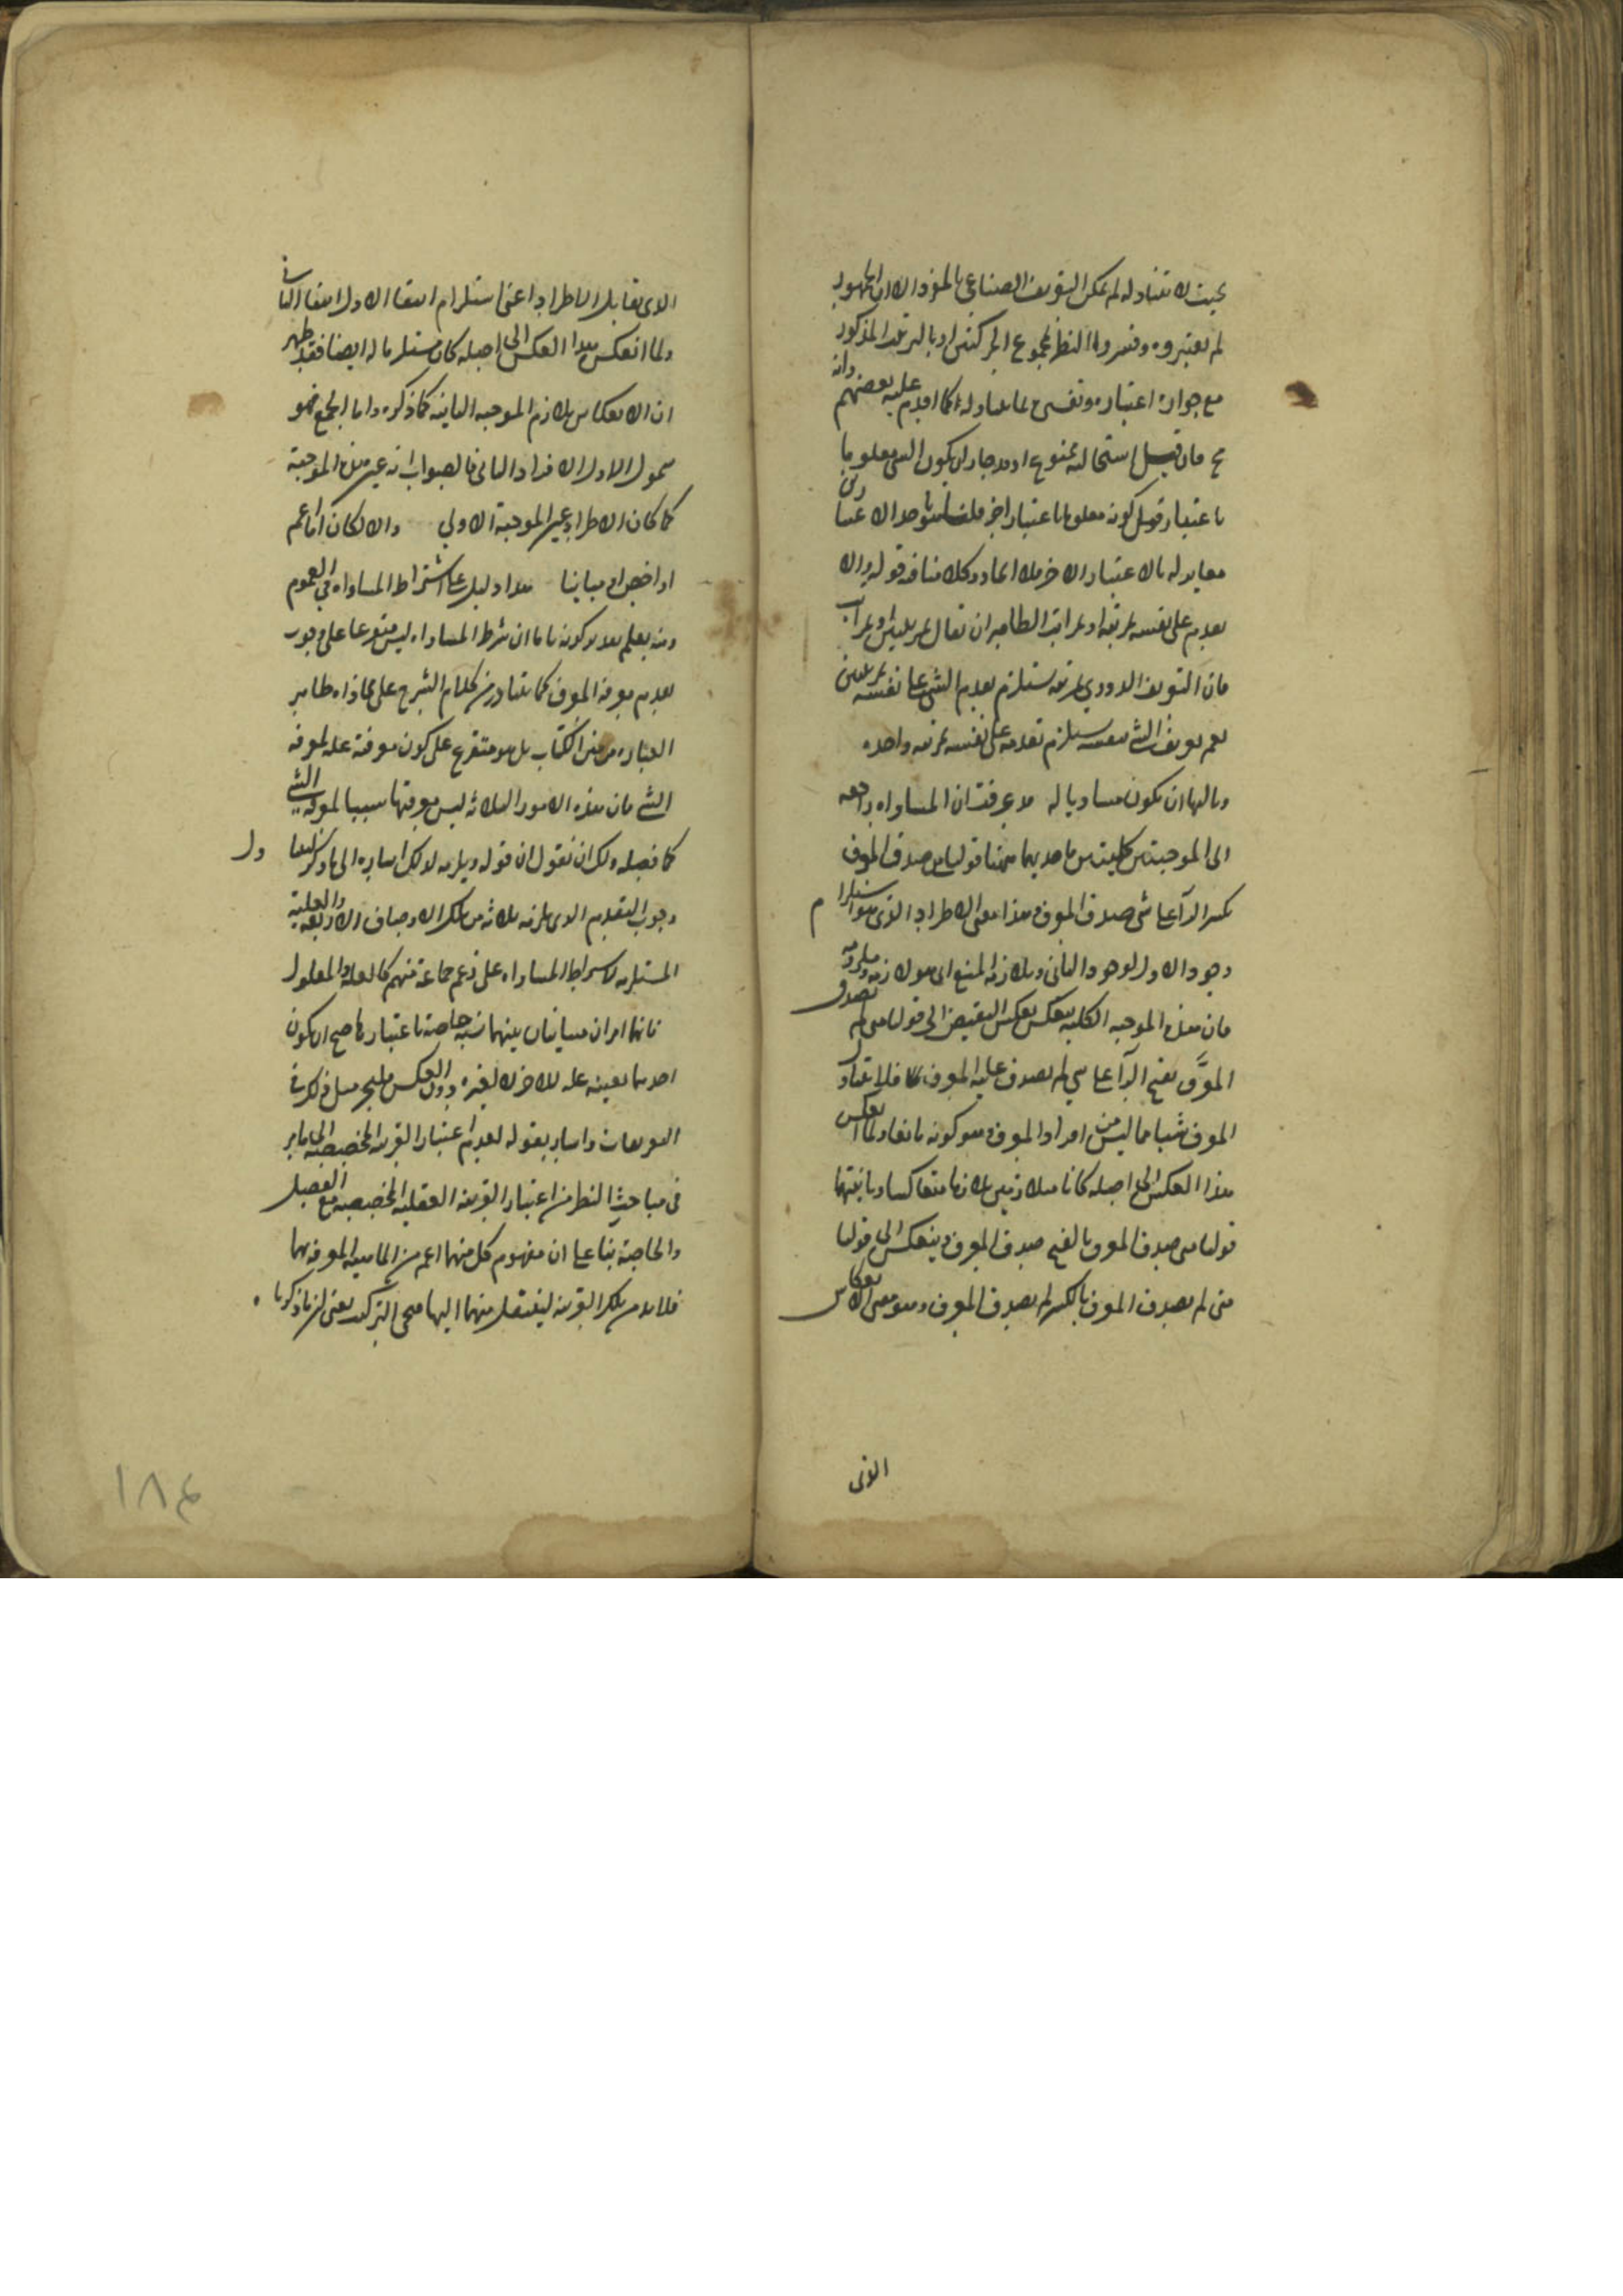 بحيث لا تتناوله لم يمكن التعريف الصناعي بالمفرد الا ان الجمهور
لم يعتبروه وفسروا النظر بمجموع الحركتين او بالترتيب المذكور
مع جواز اعتباره وتفسيره بما يتناوله كما اقدم عليه بعضهم وانه
فان قيل استحالته ممنوع اذ قد جاز ان يكون الشي معلوما
باعتبار قبل كونه معلوما باعتبار اخر قلنا
مغاير له بالاعتبار الاخر فلا اتحاد وكلامنا فيه قوله والا
يقدم على نفسه بمرتبة او بمراتب الظاهر ان يقال بمرتبتين او بمراتب
فان التعريف الدوري بمرتبة يستلزم تقدم الشي على نفسه بمرتبتين
نعم تعريف الشي بنفسه يستلزم تقدمه على نفسه بمرتبة واحدة
وثالثها ان يكون مساويا له قد عرفت ان المساواة راجعة
الى الموجبتين كليتين فاحديهما ههنا قولنا متى صدق المعرف
بكسر الرا على شي صدق المعرف وهذا معنى الاطراد الذي هو استلزام
وجود الاول لوجود الثاني ويلازمه المنع اي هو لازمه وملزومه
فان هذه الموجبة الكلية تنعكس بعكس النقيض الى قولنا متى لم يصدق
المعرَّف بفتح الرا على شي لم يصدق عليه المعرف فلا يتناول
المعرف شيا مما ليس من افراد المعرف وهو كونه مانعا ولما انعكس
هذا العكس الى اصله كانا متلازمين تلازما متعاكسا وثانيتهما
قولنا متى صدق المعرف بالفتح صدق المعرف وينعكس الى قولنا
متى لم يصدق المعرف بالكسر لم يصدق المعرف وهو معنى الانعكاس
الذي
الذي يقابل الاطراد اعني استلزام انتفا الاول انتفا الثاني
ولما انعكس هذا العكس الى اصله كان مستلزما له ايضا فقد ظهر
ان الانعكاس يلازم الموجبة الثانية كما ذكره واما الجمع فهو
شمول الاول لافراد الثاني فالصواب انه عين هذه الموجبة
كما كان الاطراد عين الموجبة الاولى والا لكان اما اعم
او اخص او مباينا هذا دليل على اشتراط المساواة في العموم
ومنه يعلم ان شرط المساواة ليس متفرعا على وجوب
تقدم معرفة المعرف كما يتبادر من كلام الشرح على محاذاة ظاهر
العبارة من متن الكتاب بل هو متفرع على كون معرفته علة لمعرفة
الشي فان هذه الامور الثلاثة ليس معرفتها سببا لمعرفة الشي
كما فصله ولك ان تقول ان قوله ويلزمه لذلك اشارة الى ما ذكر
وجوب التقديم الذي يلزمه ثلاثة من تلك الاوصاف الاربعة والعلية
المستلزمة لاشتراط المساواة على زعم جماعة منهم كالعلة والمعلول
فانهما امران متباينان بينهما نسبة خاصة باعتبارها صح ان يكون
احدهما بعينه علة للاخر لا لغيره ودون العكس
التعريفات واشار بقوله لعدم اعتبار القرينة المخصصة الى ما مر
في مباحث النظر من اعتبار القرينة العقلية المخصصة مع الفصل
والخاصة بنا على ان مفهوم كل منهما اعم من الماهية المعرفة بهما
فلا بد من تلك القرينة لينتقل منهما اليها
١٨٤